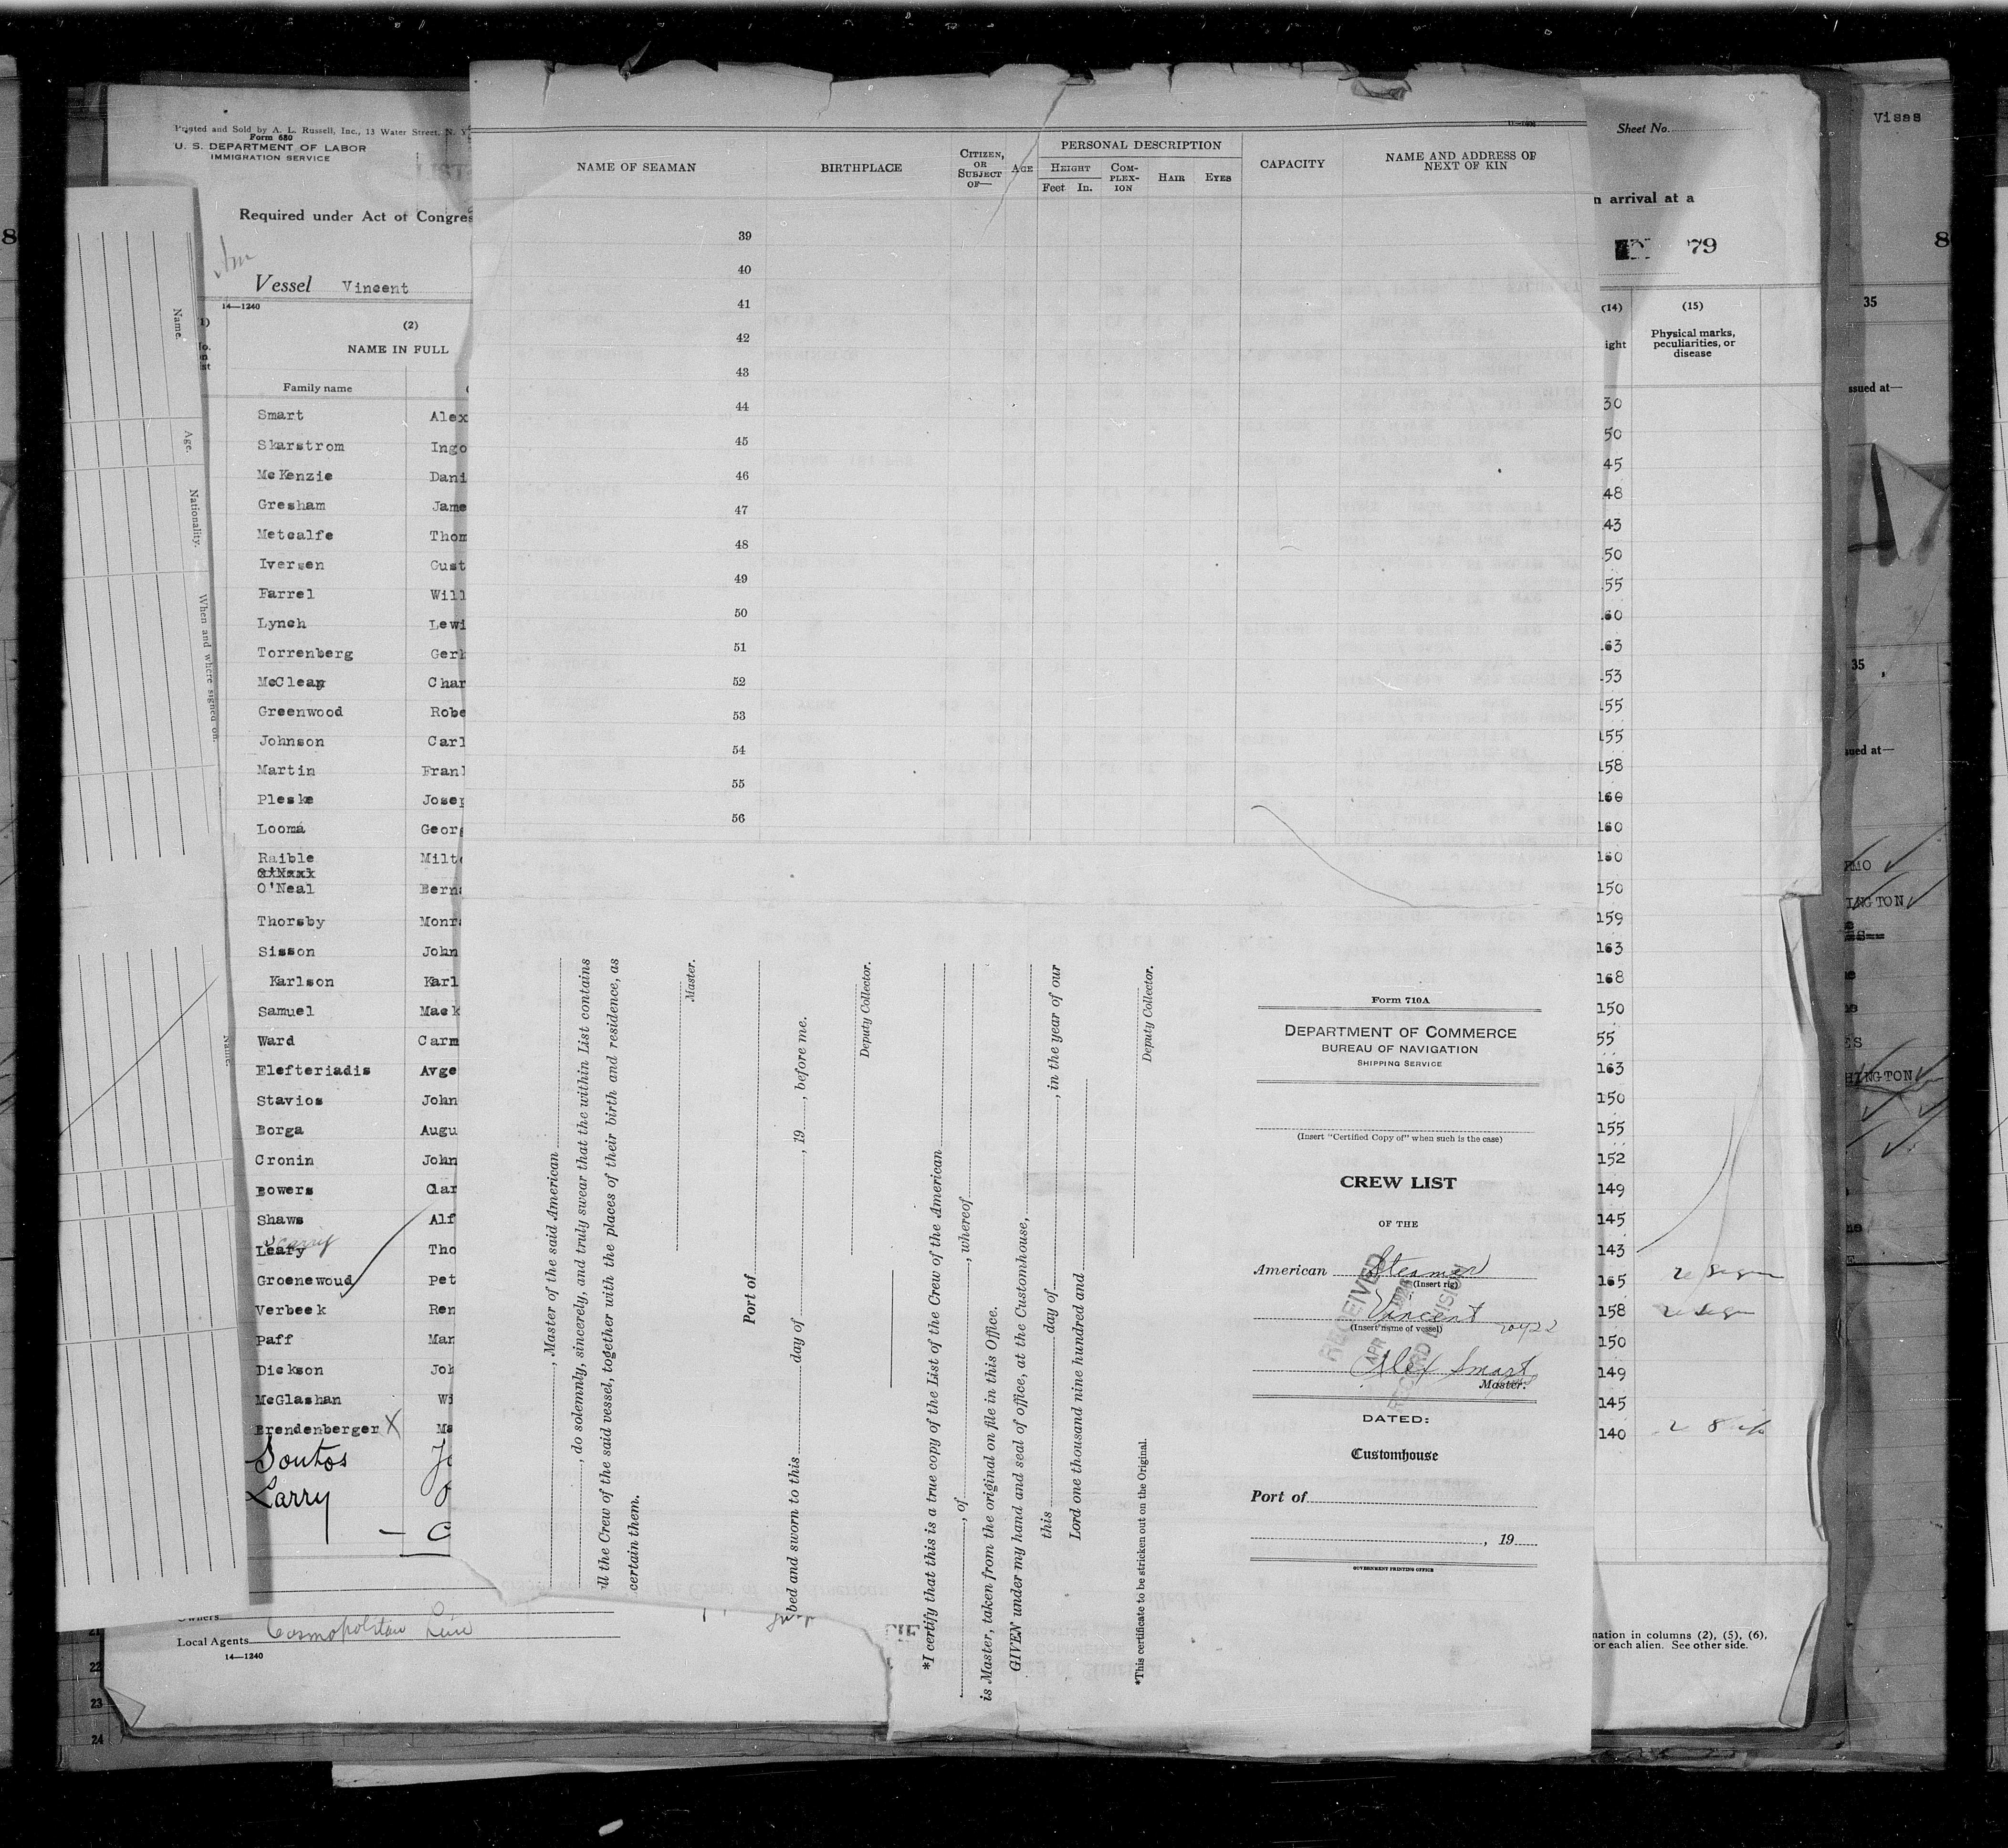 Printed and Sold by A. L. Russell, Inc., 13 Water Street, N. Y
Form 680
U. S. DEPARTMENT OF LABOR
IMMIGRATION SERVICE
Required under Act of Congres
Vessel Vincent
14—1240
(2)
NAME IN FULL
Family name
Smart Alex
Skarstrom Ingo
McKenzie Dani
Gresham Jame
Metcalfe Thom
Iversen Gust
Farrel Will
Lynch Lewi
Torrenberg Gerh
McClean Char
Greenwood Robe
Johnson Carl
Martin Fran
Pleske Josep
Looma Georg
Raible Milt
O'Neal Berna
Thorsby Monr
Sisson John
Karlson Karl
Samuel Mack
Ward Carm
Elefteriadis Avge
Stavios John
Borga Augu
Cronin John
Bowers Clar
Shaws Alf
Leary Tho
Groenewoud Pet
Verbeek Ren
Paff Mar
Dickson Joh
McGlashan Wi
Brendenberger X Ma
Soutos Jo
Larry
Owners
Local Agents Cosmopolitan Line
14—1240
21
22
23
24
Name.
Age.
Nationality.
When and where signed on.
Name.
NAME OF SEAMAN
BIRTHPLACE
CITIZEN, OR SUBJECT OF—
AGE
PERSONAL DESCRIPTION
HEIGHT
Feet In.
COMPLEX-ION
HAIR
EYES
CAPACITY
NAME AND ADDRESS OF NEXT OF KIN
39
40
41
42
43
44
45
46
47
48
49
50
51
52
53
54
55
56
, Master of the said American
, do solemnly, sincerely, and truly swear that the within List contains
ll the Crew of the said vessel, together with the places of their birth and residence, as
certain them.
Master.
Port of
bed and sworn to this day of , 19 , before me.
Deputy Collector.
*I certify that this is a true copy of the List of the Crew of the American
, of , whereof
is Master, taken from the original on file in this Office.
GIVEN under my hand and seal of office, at the Customhouse,
this day of , in the year of our
Lord one thousand nine hundred and
Deputy Collector.
*This certificate to be stricken out on the Original.
Form 710A
DEPARTMENT OF COMMERCE
BUREAU OF NAVIGATION
SHIPPING SERVICE
(Insert "Certified Copy of" when such is the case)
CREW LIST
OF THE
American Steamer
(Insert rig)
Vincent
(Insert name of vessel)
Alex Smart
Master.
RECEIVED
APR
RECORD DIVISION
DATED:
Customhouse
Port of
, 19
GOVERNMENT PRINTING OFFICE
Sheet No.
n arrival at a
79
(14) (15)
ight
Physical marks, peculiarities, or disease
30
50
45
48
43
50
55
60
63
53
155
155
158
160
160
150
159
163
168
150
55
163
150
155
152
149
145
143
165
158
150
149
145
140
nation in columns (2), (5), (6),
or each alien. See other side.
Visas
8
35
ssued at—
35
ued at—
INGTON
HINGTON